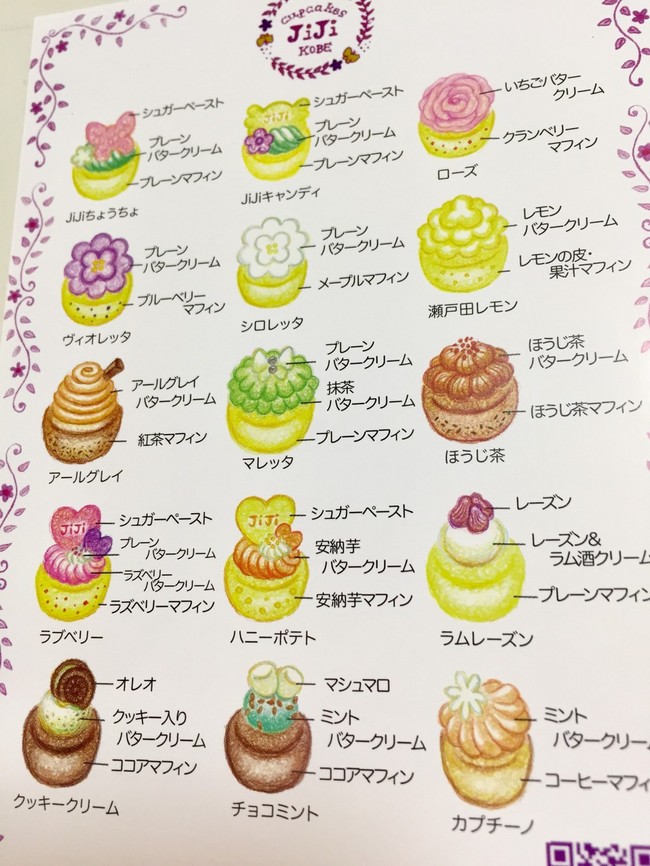 cupcakes
JiJi
KOBE
シュガーペースト
プレーン
バタークリーム
プレーンマフィン
JiJiちょうちょ
JiJi
シュガーペースト
プレーン
バタークリーム
プレーンマフィン
JiJiキャンディ
いちごバター
クリーム
クランベリー
マフィン
ローズ
プレーン
バタークリーム
ブルーベリー
マフィン
ヴィオレッタ
プレーン
バタークリーム
メープルマフィン
シロレッタ
レモン
バタークリーム
レモンの皮・
果汁マフィン
瀬戸田レモン
アールグレイ
バタークリーム
紅茶マフィン
アールグレイ
プレーン
バタークリーム
抹茶
バタークリーム
プレーンマフィン
マレッタ
ほうじ茶
バタークリーム
ほうじ茶マフィン
ほうじ茶
JiJi
シュガーペースト
プレーン
バタークリーム
ラズベリー
バタークリーム
ラズベリーマフィン
ラブベリー
JiJi
シュガーペースト
安納芋
バタークリーム
安納芋マフィン
ハニーポテト
レーズン
レーズン&
ラム酒クリーム
プレーンマフィン
ラムレーズン
オレオ
クッキー入り
バタークリーム
ココアマフィン
クッキークリーム
マシュマロ
ミント
バタークリーム
ココアマフィン
チョコミント
ミント
バタークリーム
コーヒーマフィ
カプチーノ